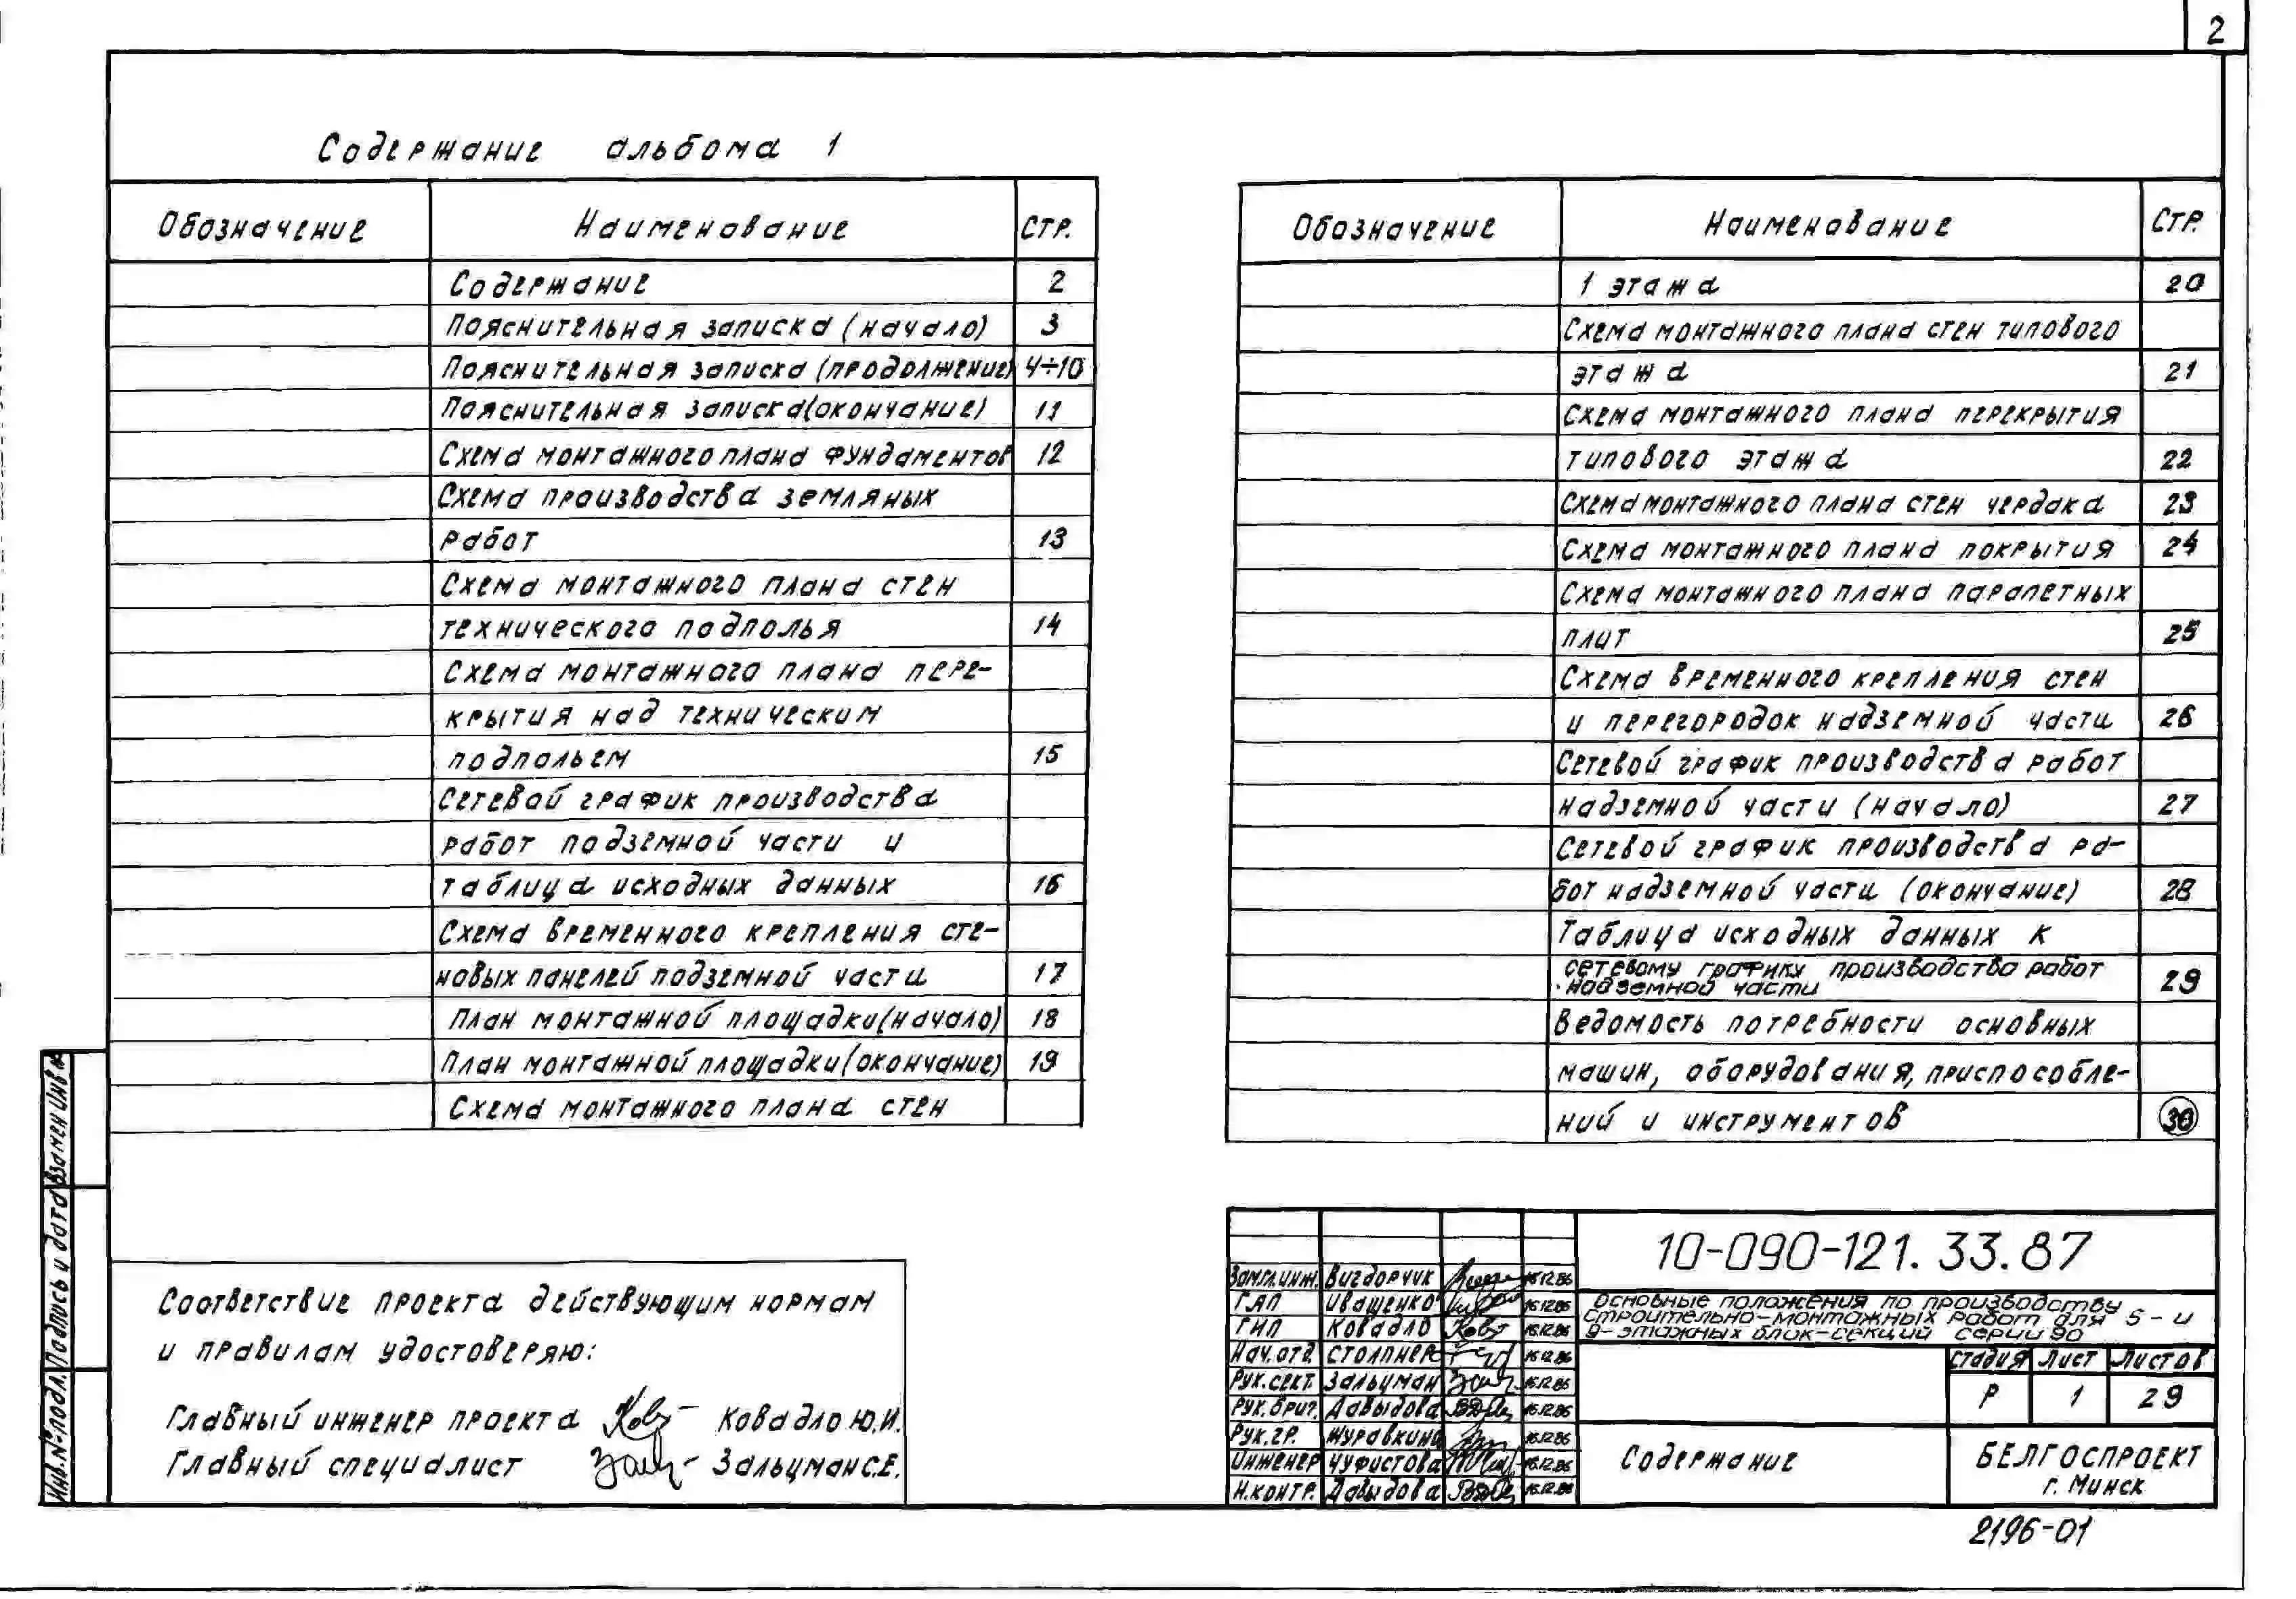 2
Содержание альбома 1
Обозначение Наименование Стр.
Содержание 2
Пояснительная записка (начало) 3
Пояснительная записка (продолжение) 4÷10
Пояснительная записка (окончание) 11
Схема монтажного плана фундаментов 12
Схема производства земляных
работ 13
Схема монтажного плана стен
технического подполья 14
Схема монтажного плана пере-
крытия над техническим
подпольем 15
Сетевой график производства
работ подземной части и
таблица исходных данных 16
Схема временного крепления сте-
новых панелей подземной части 17
План монтажной площадки (начало) 18
План монтажной площадки (окончание) 19
Схема монтажного плана стен
Обозначение Наименование Стр.
1 этажа 20
Схема монтажного плана стен типового
этажа 21
Схема монтажного плана перекрытия
типового этажа 22
Схема монтажного плана стен чердака 23
Схема монтажного плана покрытия 24
Схема монтажного плана парапетных
плит 25
Схема временного крепления стен
и перегородок надземной части 26
Сетевой график производства работ
надземной части (начало) 27
Сетевой график производства ра-
бот надземной части (окончание) 28
Таблица исходных данных к
сетевому графику производства работ
надземной части 29
Ведомость потребности основных
машин, оборудования, приспособле-
ний и инструментов 30
Соответствие проекта действующим нормам
и правилам удостоверяю:
Главный инженер проекта Ковадло Ю.И.
Главный специалист Зальцман С.Е.
Инв.№ подл. Подпись и дата Взамен Инв.№
Зам.гл.инж. Вигдорчик 16.12.86
ГАП Иващенко 16.12.86
ГИП Ковадло 16.12.86
Нач.отд. Столпнер 16.12.86
Рук.сект. Зальцман 16.12.86
Рук.бриг. Давыдова 16.12.86
Рук.гр. Журавкина 16.12.86
Инженер Чуфистова 16.12.86
Н.контр. Давыдова 16.12.86
10-090-121.33.87
Основные положения по производству
строительно-монтажных работ для 5-и
9-этажных блок-секций серии 90
Стадия Лист Листов
Р 1 29
Содержание
БЕЛГОСПРОЕКТ
г. Минск
2196-01